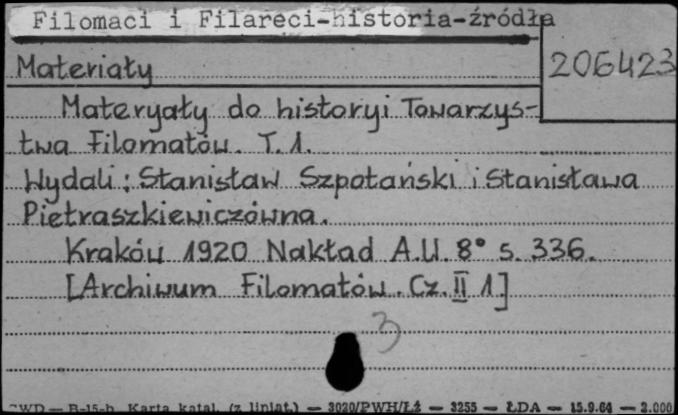 Filomaci i Filareci-historia-źródła
Materiały
206423
Materyały do historyi Towarzys-
twa Filomatów. T. 1.
Wydali: Stanisław Szpotański i Stanisława
Pietraszkiewiczówna.
Kraków 1920 Nakład A.U. 8° s. 336.
[Archiwum Filomatów. Cz. II 1]
3
CWD — B-15-b. Karta katal. (z liniat.) — 3020/PWH/ŁŻ — 3255 — ŁDA — 15.9.64 — 2.000